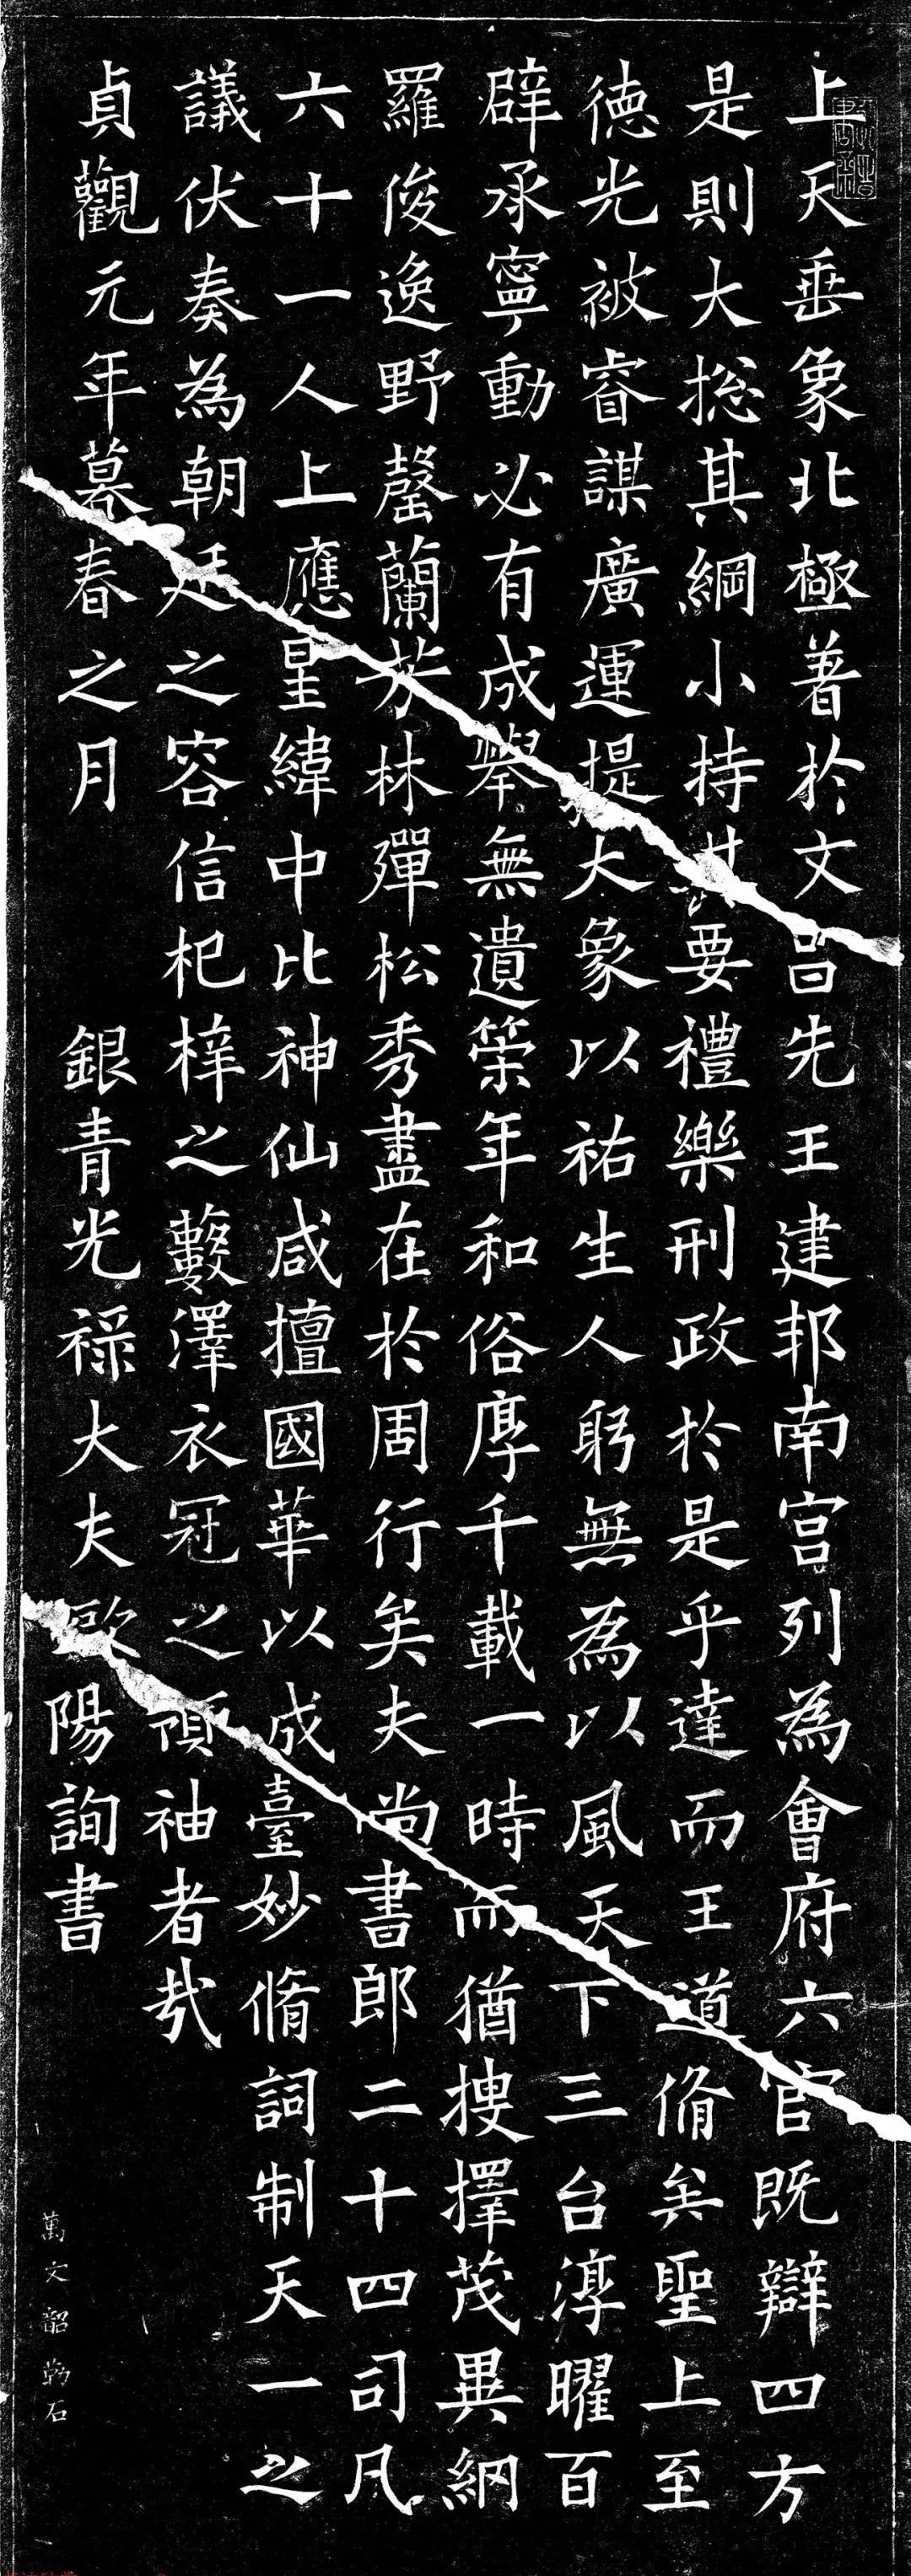 上天垂象北極著於文昌先王建邦南宮列為會府六官既辯四方
是則大捴其綱小持其要禮樂刑政於是乎達而王道脩矣聖上至
徳光被睿謀廣運提大象以祐生人躬無為以風天下三台淳曜百
辟承寧動必有成舉無遺策年和俗厚千載一時而猶搜擇茂異網
羅俊逸野罄蘭芳林殫松秀盡在於周行矣夫尚書郎二十四司凡
六十一人上應星緯中比神仙咸擅國華以成臺妙脩詞制天一之
議伏奏為朝廷之容信杞梓之藪澤衣冠之領袖者㢤
貞觀元年暮春之月 銀青光祿大夫歐陽詢書
萬文韶勒石